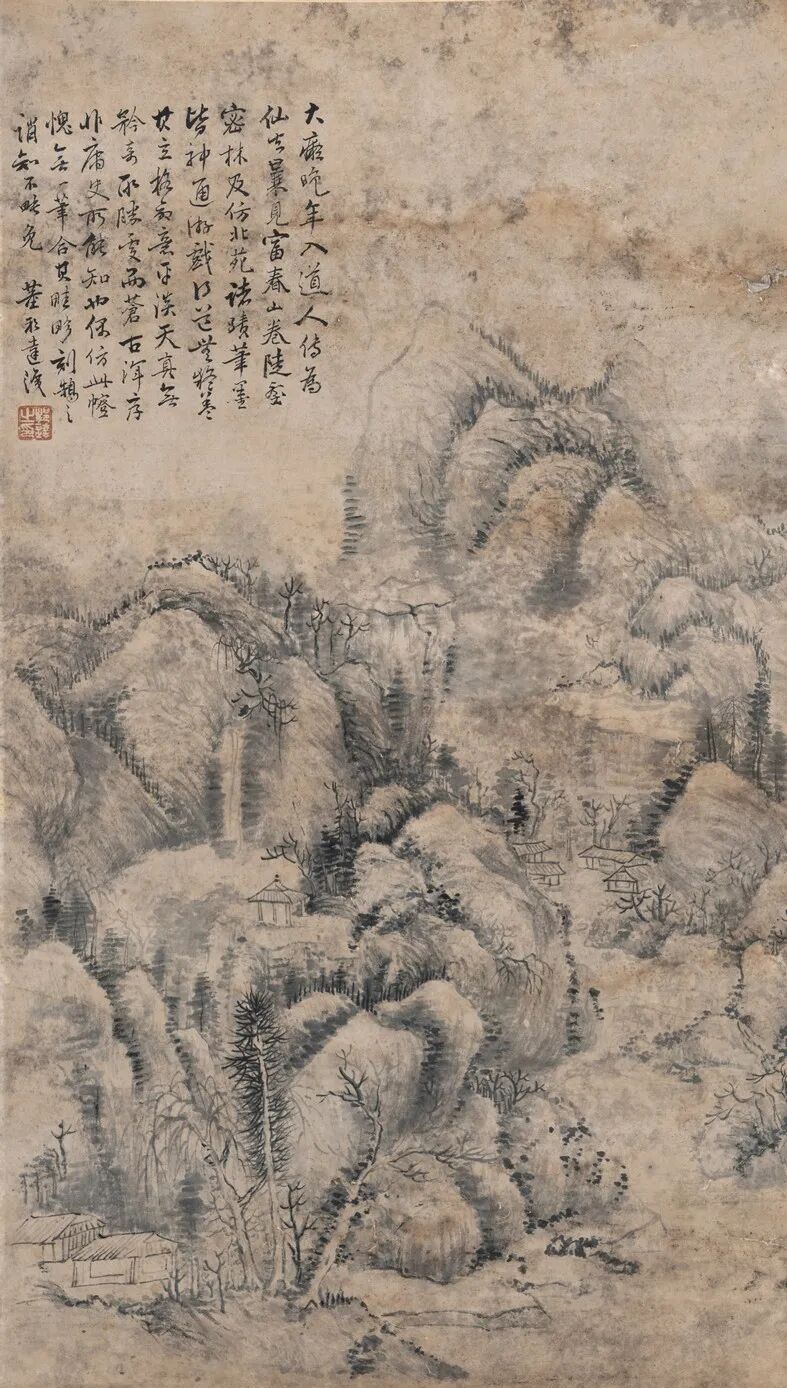 大癡晚年入道人傳為
仙去暴見富春山卷陡壑
密林及仿北苑諸蹟筆墨
皆神通游戲
其立格高意平淡天真無
矜奇取勝處而蒼古渾厚
非庸史所能知也偶仿此幀
愧無一筆合其畦畛刻鵠之
誚知不能免 董邦達識
邦達之印